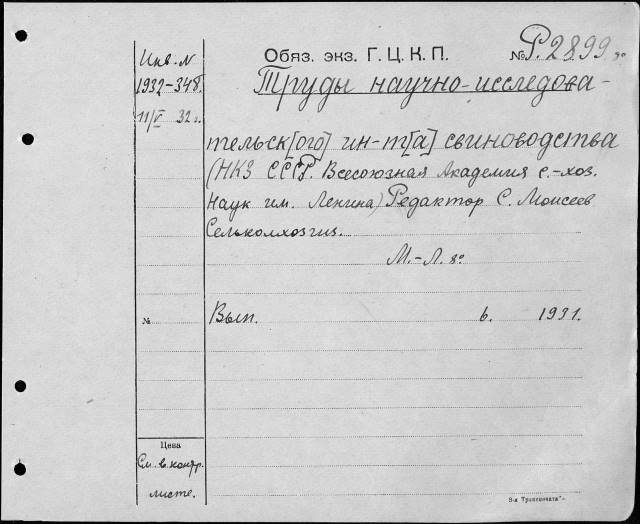 Инв. N
1932-348.
11/V 32 г.
Обяз. экз. Г. Ц. К. П.
№ Р. 2899 8º
Труды научно-исследова-
тельск[ого] ин-т[а] свиноводства
(НКЗ СССР. Всесоюзная Академия с.-хоз.
Наук им. Ленина) Редактор С. Моисеев
Сельколхозгиз.
М.-Л. 8º
№ Вып. 6. 1931.
Цена
См. в. контр.
листе.